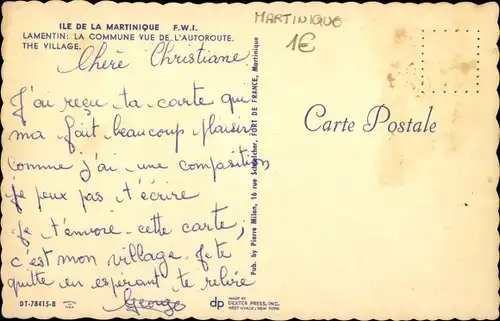 ILE DE LA MARTINIQUE F.W.I.
LAMENTIN: LA COMMUNE VUE DE L'AUTOROUTE.
THE VILLAGE.
Chère Christiane
J'ai reçu ta carte qui
ma fait beaucoup plaisir
comme j'ai une composition
je peux pas t'écrire
je t'envoie cette carte,
c'est mon village. Je te
quitte en espérant te relire
George
DT-78415-B
Pub. by Pierre Milon, 16 rue Schœlcher, FORT DE FRANCE, Martinique
dp
MADE BY
DEXTER PRESS, INC.
WEST NYACK, NEW YORK
MARTINIQUE
1€
Carte Postale